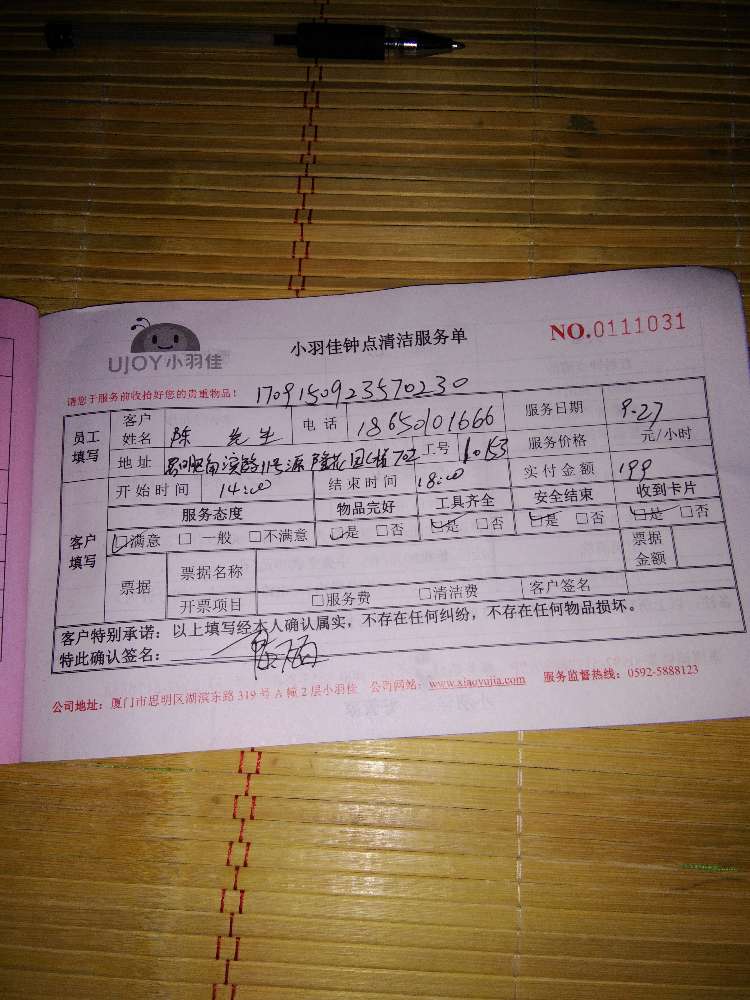 UJOY小羽佳
小羽佳钟点清洁服务单
NO.0111031
请您于服务前收拾好您的贵重物品!
1709150923570230
员工填写 客户姓名 陈 先生 电话 18650101666 服务日期 9.27
地址 11号源 花园 702 工号 1053 服务价格 元/小时
客户填写 开始时间 14:00 结束时间 18:00 实付金额 199
服务态度 物品完好 工具齐全 安全结束 收到卡片
□满意 □一般 □不满意 □是 □否 □是 □否 □是 □否 □是 □否
票据 票据名称 票据金额
开票项目 □服务费 □清洁费 客户签名
客户特别承诺:以上填写经本人确认属实,不存在任何纠纷,不存在任何物品损坏。
特此确认签名:
公司地址:厦门市思明区湖滨东路 319 号 A 幢 2 层小羽佳 公司网站:www.xiaoyujia.com 服务监督热线:0592-5888123